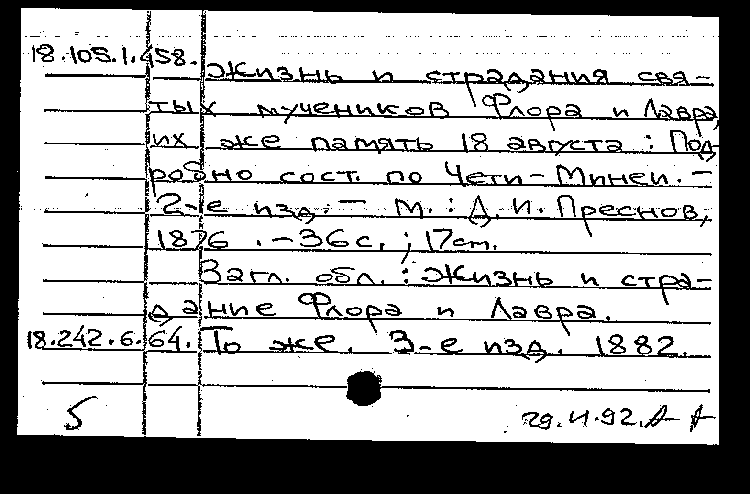 18.105.1.458.
Жизнь и страдания свя-
тых мучеников Флора и Лавра,
их же память 18 августа : Под-
робно сост. по Чети-Минеи. –
2-е изд. – М. : Д. И. Преснов,
1876 . – 36 с. ; 17 cm.
Загл. обл. : Жизнь и стра-
дание Флора и Лавра.
18.242.6.64. То же. 3-е изд. 1882.
5